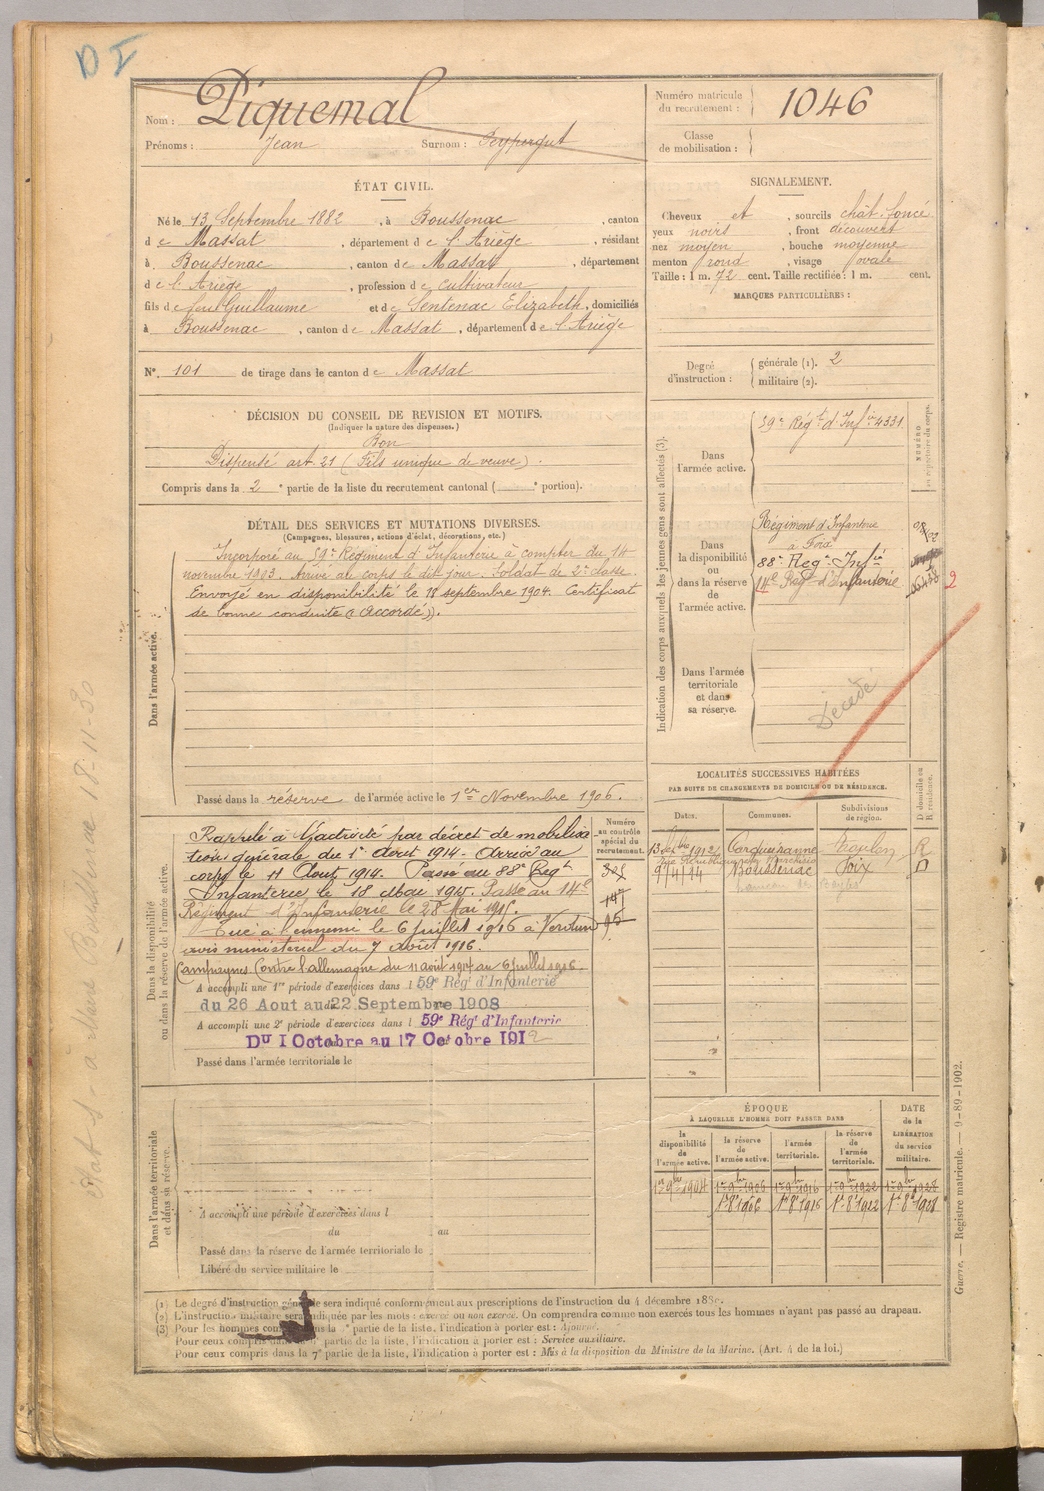 D I
Nom : Piquemal
Prénoms : Jean Surnom : Peypergut
Numéro matricule du recrutement : 1046
Classe de mobilisation :
ÉTAT CIVIL.
Né le 13 Septembre 1882, à Boussenac, canton
de Massat, département de l'Ariège, résidant
à Boussenac, canton de Massat, département
de l'Ariège, profession de Cultivateur
fils de feu Guillaume et de Sentenac Elizabeth, domiciliés
à Boussenac, canton de Massat, département de l'Ariège
N° 101 de tirage dans le canton de Massat
SIGNALEMENT.
Cheveux et, sourcils chât. foncé
yeux noirs, front découvert
nez moyen, bouche moyenne
menton rond, visage ovale
Taille : 1 m. 72 cent. Taille rectifiée : 1 m. cent.
MARQUES PARTICULIÈRES :
Degré d'instruction : générale (1). 2
militaire (2).
DÉCISION DU CONSEIL DE REVISION ET MOTIFS.
(Indiquer la nature des dispenses.)
Bon
Dispensé art. 21 (Fils unique de veuve).
Compris dans la 2e partie de la liste du recrutement cantonal ( e portion).
DÉTAIL DES SERVICES ET MUTATIONS DIVERSES.
(Campagnes, blessures, actions d'éclat, décorations, etc.)
Dans l'armée active.
Incorporé au 59e Régiment d'Infanterie à compter du 14
novembre 1903. Arrivé au corps le dit jour. Soldat de 2e classe.
Envoyé en disponibilité le 18 septembre 1904. Certificat
de bonne conduite "Accordé".
Passé dans la réserve de l'armée active le 1er Novembre 1906.
Indication des corps auxquels les jeunes gens sont affectés (3).
NUMÉRO au répertoire du corps.
Dans l'armée active.
59e Régt d'Infie 4331
Dans la disponibilité ou dans la réserve de l'armée active.
Régiment d'Infanterie
à Foix
88e Regt Infie
14e Regt d'Infanterie
2
Dans l'armée territoriale et dans sa réserve.
Décédé
LOCALITÉS SUCCESSIVES HABITÉES
PAR SUITE DE CHANGEMENTS DE DOMICILE OU DE RÉSIDENCE.
Dates. Communes. Subdivisions de région. D domicile ou R résidence.
13 1912 Carqueiranne Toulon R
9/4/14 Boussenac Foix D
Dans la disponibilité ou dans la réserve de l'armée active.
Numéro au contrôle spécial du recrutement.
Rappelé à l'activité par décret de mobilisa
tion générale du 1er Aout 1914. Arrivé au
corps le 11 Aout 1914. Passé au 88e Regt
Infanterie le 18 Mai 1915. Passé au 14e
Régiment d'Infanterie le 28 Mai 1915.
Tué à l'ennemi le 6 juillet 1916 à Verdun
avis ministeriel du 7 Août 1916.
Campagnes Contre l'allemagne du 11 aout 1914 au 6 juillet 1916.
A accompli une 1re période d'exercices dans l 59e Régt d'Infanterie
du 26 Aout au 22 Septembre 1908
A accompli une 2e période d'exercices dans l 59e Régt d'Infanterie
DU 1 Octobre au 17 Octobre 1912
Passé dans l'armée territoriale le
ÉPOQUE
À LAQUELLE L'HOMME DOIT PASSER DANS
la disponibilité de l'armée active. la réserve de l'armée active. l'armée territoriale. la réserve de l'armée territoriale. DATE de la LIBÉRATION du service militaire.
1er 9bre 1904 1er 9bre 1906 1er 9bre 1916 1er 9bre 1922 1er 9bre 1928
1er 8e 1906 1er 8e 1916 1er 8e 1922 1er 8e 1928
Dans l'armée territoriale et dans sa réserve.
A accompli une période d'exercices dans l
du au
Passé dans la réserve de l'armée territoriale le
Libéré du service militaire le
(1) Le degré d'instruction générale sera indiqué conformément aux prescriptions de l'instruction du 4 décembre 1889.
(2) L'instruction militaire sera indiquée par les mots : exercé ou non exercé. On comprendra comme non exercés tous les hommes n'ayant pas passé au drapeau.
(3) Pour les hommes dans la partie de la liste, l'indication à porter est : Ajourné.
Pour ceux compris dans la partie de la liste, l'indication à porter est : Service auxiliaire.
Pour ceux compris dans la 7e partie de la liste, l'indication à porter est : Mis à la disposition du Ministre de la Marine. (Art. 4 de la loi.)
Guerre. — Registre matricule. — 9-89-1902.
18-11-30